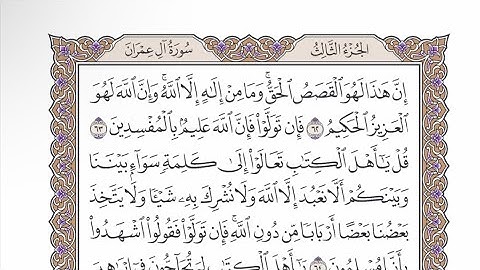 الجزء الثالث
سورة آل عمران
إِنَّ هَٰذَا لَهُوَ ٱلْقَصَصُ ٱلْحَقُّ ۚ وَمَا مِنْ إِلَٰهٍ إِلَّا ٱللَّهُ ۚ وَإِنَّ ٱللَّهَ لَهُوَ
ٱلْعَزِيزُ ٱلْحَكِيمُ ٦٢ فَإِن تَوَلَّوْا۟ فَإِنَّ ٱللَّهَ عَلِيمٌۢ بِٱلْمُفْسِدِينَ ٦٣
قُلْ يَٰٓأَهْلَ ٱلْكِتَٰبِ تَعَالَوْا۟ إِلَىٰ كَلِمَةٍ سَوَآءٍۭ بَيْنَنَا
وَبَيْنَكُمْ أَلَّا نَعْبُدَ إِلَّا ٱللَّهَ وَلَا نُشْرِكَ بِهِۦ شَيْـًٔا وَلَا يَتَّخِذَ
بَعْضُنَا بَعْضًا أَرْبَابًا مِّن دُونِ ٱللَّهِ ۚ فَإِن تَوَلَّوْا۟ فَقُولُوا۟ ٱشْهَدُوا۟
بِأَنَّا مُسْلِمُونَ ٦٤ يَٰٓأَهْلَ ٱلْكِتَٰبِ لِمَ تُحَآجُّونَ فِىٓ إِبْرَٰهِيمَ